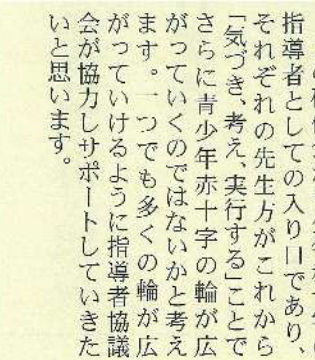 指導者としての入り口であり、
それぞれの先生方がこれから
「気づき、考え、実行する」ことで
さらに青少年赤十字の輪が広
がっていくのではないかと考え
ます。一つでも多くの輪が広
がっていけるように指導者協議
会が協力しサポートしていきた
いと思います。